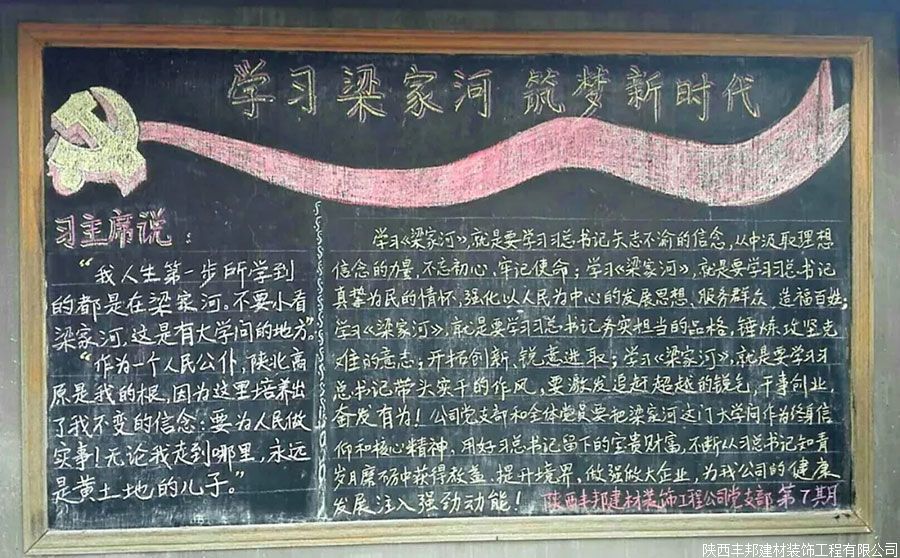 学习梁家河 筑梦新时代
习主席说：
“我人生第一步所学到
的都是在梁家河。不要小看
梁家河,这是有大学问的地方”。
“作为一个人民公仆,陕北高
原是我的根,因为这里培养出
了我不变的信念:要为人民做
实事!无论我走到哪里,永远
是黄土地的儿子。”
学习《梁家河》,就是要学习习总书记矢志不渝的信念,从中汲取理想
信念的力量,不忘初心,牢记使命;学习《梁家河》,就是要学习习总书记
真挚为民的情怀,强化以人民为中心的发展思想、服务群众 造福百姓;
学习《梁家河》,就是要学习习总书记务实担当的品格,锤炼攻坚克
难的意志,开拓创新、锐意进取;学习《梁家河》,就是要学习习
总书记带头实干的作风,要激发追赶超越的锐气,干事创业,
奋发有为!公司党支部和全体党员要把梁家河这门大学问作为终身信
仰和核心精神,用好习总书记留下的宝贵财富,不断从习总书记知青
岁月磨砺中获得教益,提升境界,做强做大企业,为我公司的健康
发展注入强劲动能!
陕西丰邦建材装饰工程公司党支部 第7期
陕西丰邦建材装饰工程有限公司